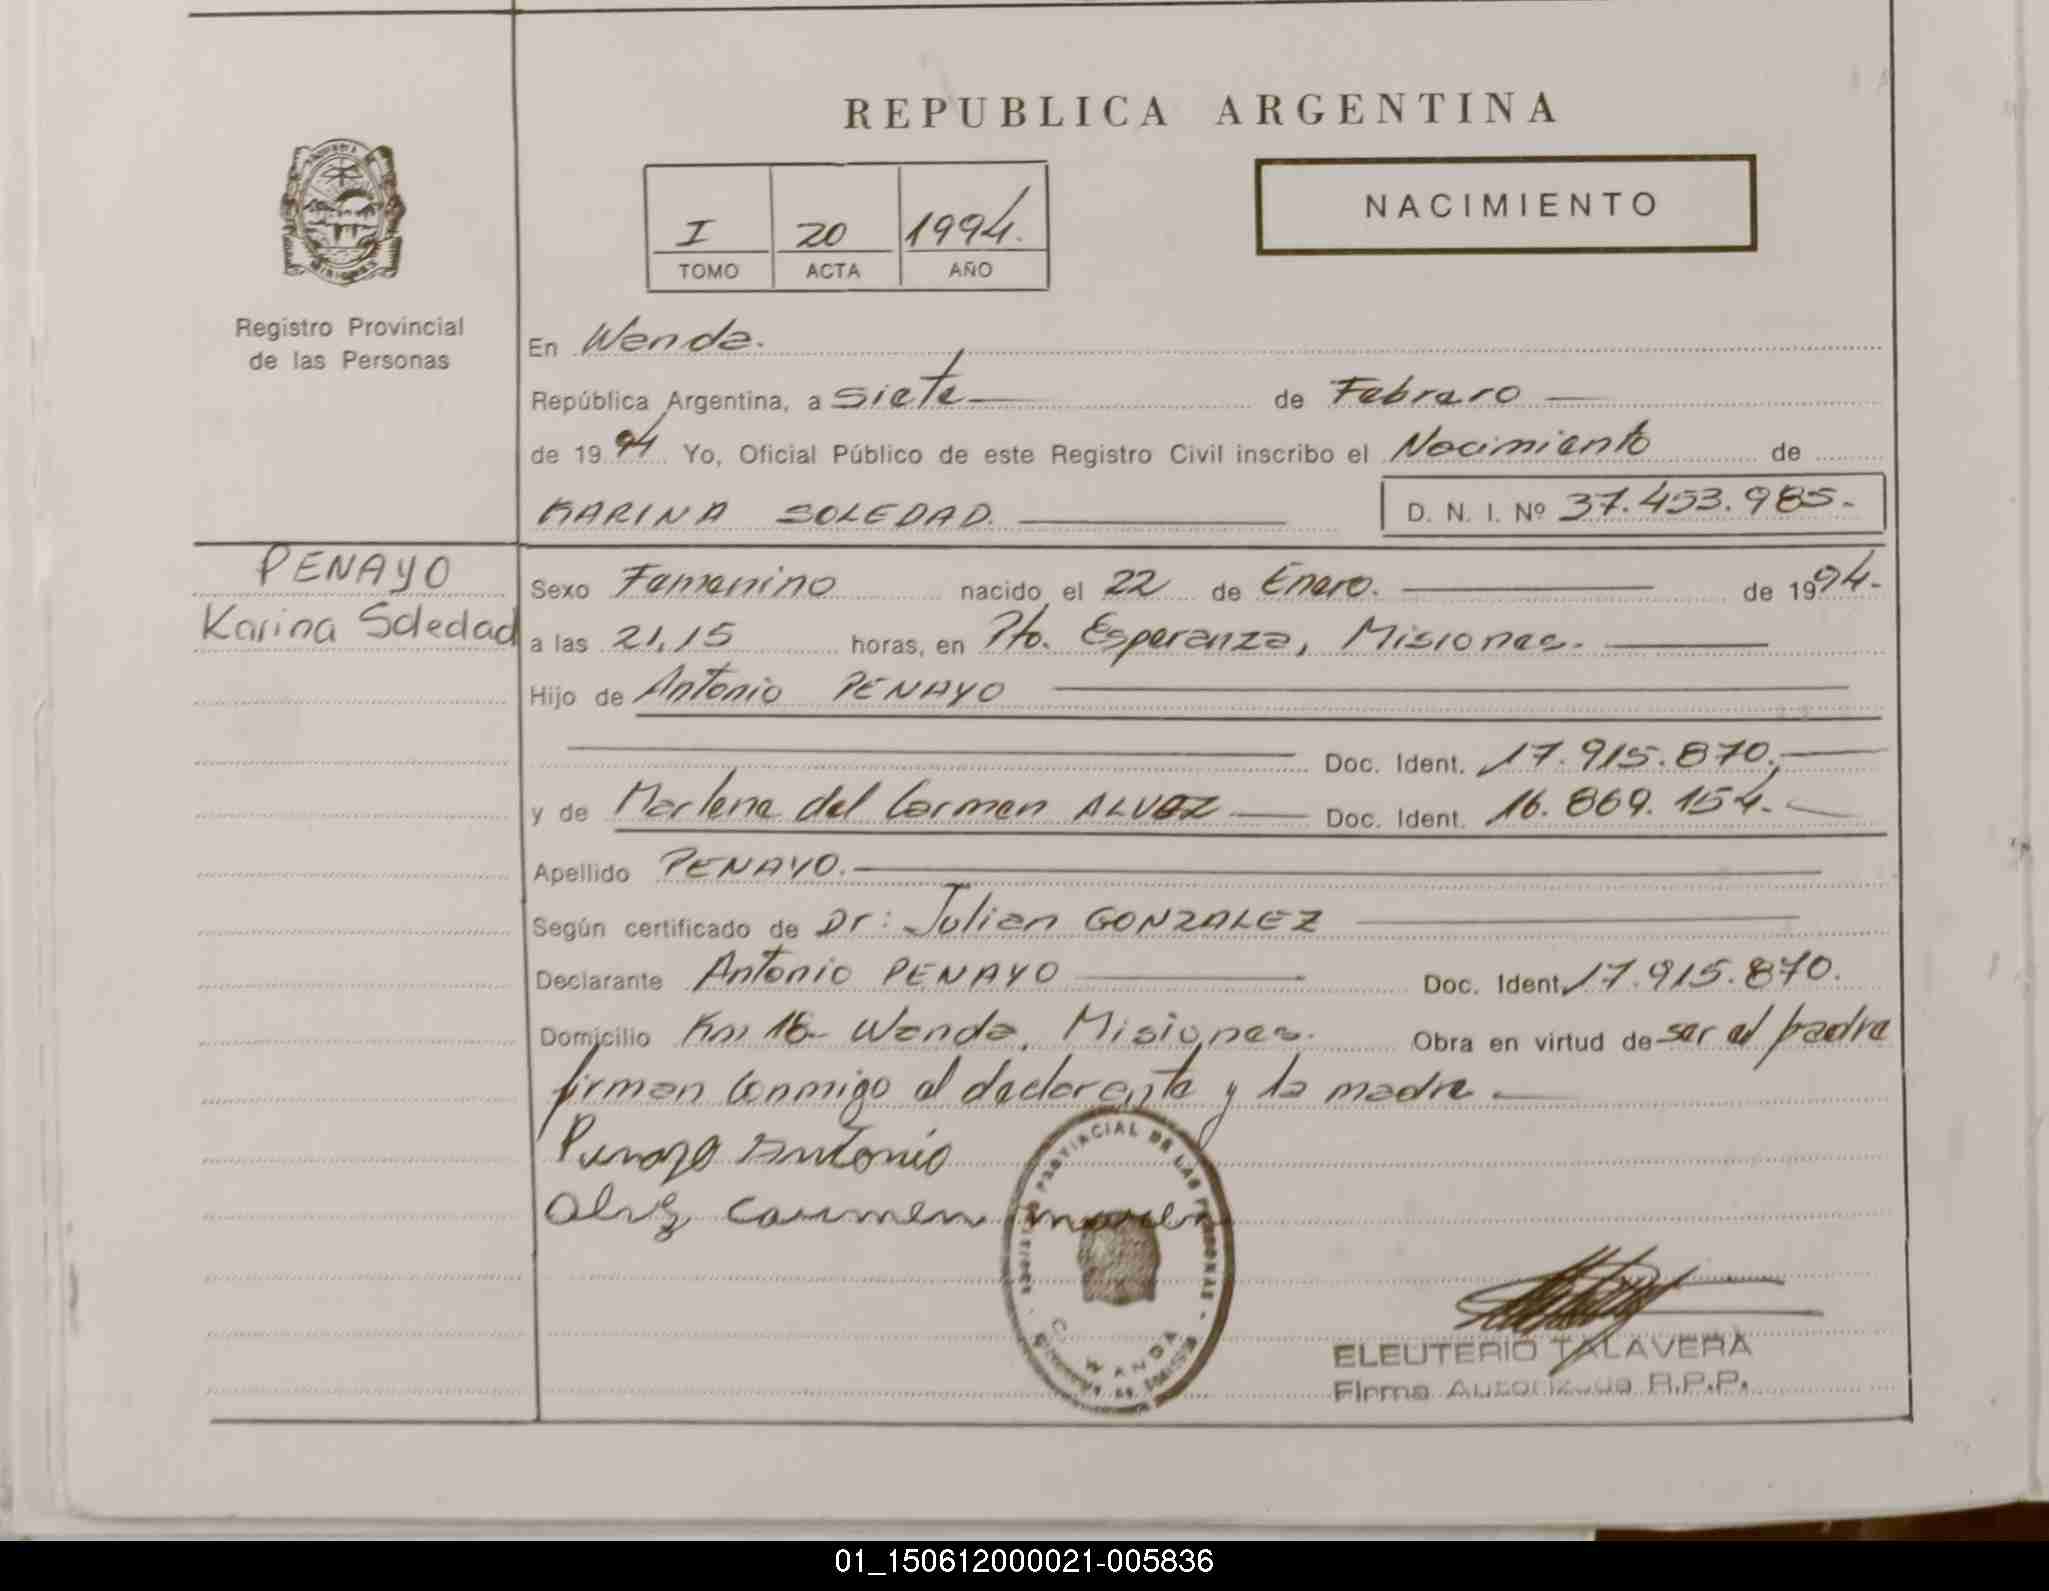 REPUBLICA ARGENTINA
NACIMIENTO
I 20 1994.
TOMO ACTA AÑO
Registro Provincial
de las Personas
En Wanda.
República Argentina, a siete de Febrero
de 1994 Yo, Oficial Público de este Registro Civil inscribo el Nacimiento de
KARINA SOLEDAD. D. N. I. Nº 37.453.985.-
PENAYO
Karina Soledad
Sexo Femenino nacido el 22 de Enero. de 1994.-
a las 21,15 horas, en Pto. Esperanza, Misiones.
Hijo de Antonio PENAYO
Doc. Ident. 17.915.870,
y de Marlene del Carmen ALVEZ Doc. Ident. 16.869.154.-
Apellido PENAYO.
Según certificado de Dr: Julian GONZALEZ
Declarante Antonio PENAYO Doc. Ident. 17.915.870.
Domicilio Km 18- Wanda, Misiones. Obra en virtud de ser el padre
firman conmigo el declarante y la madre
Penayo Antonio
Carmen
REGISTRO PROVINCIAL DE LAS PERSONAS
WANDA
ELEUTERIO TALAVERA
Firma Autorizada R.P.P.
01_150612000021-005836